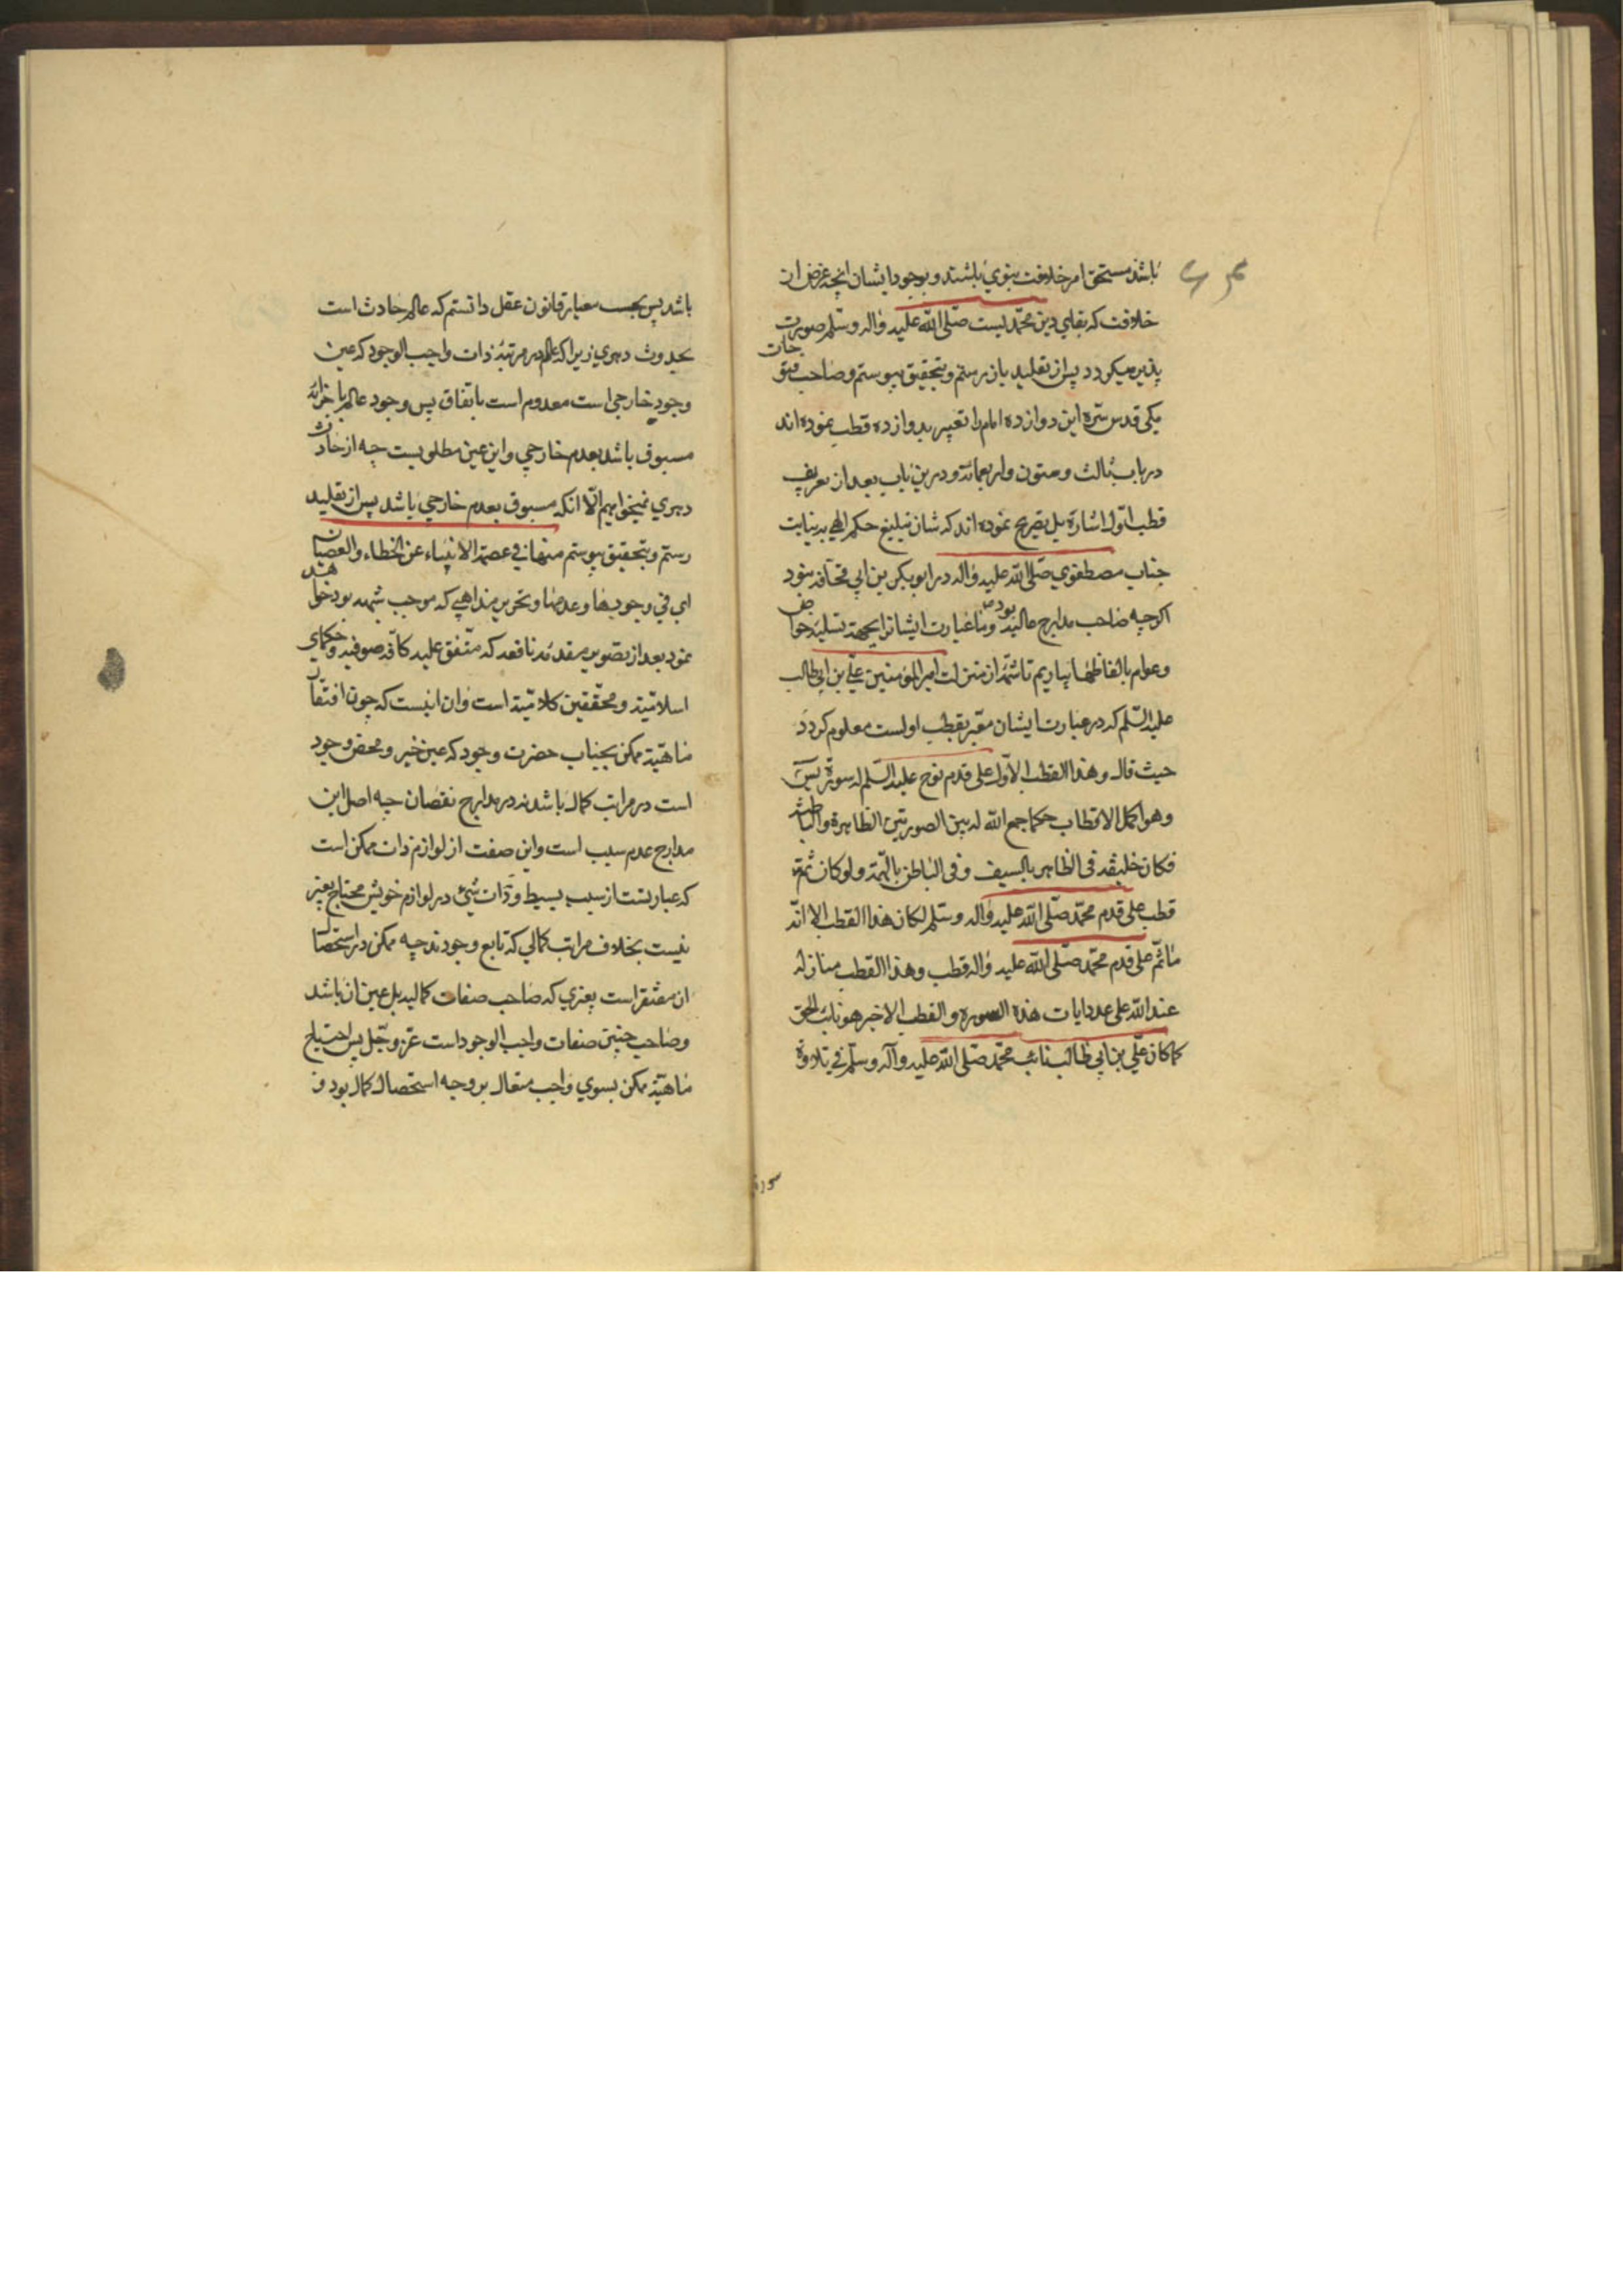 باشد مستحق امر خلافت نبوي باشند و بوجود ایشان انچه غرض از
خلافت که بقاي دین محمدیست صلّی اللّه علیه واله وسلّم صورت
پذیر میکردد پس از تقلید باز رستم و بتحقیق پیوستم و صاحب فتوحات
مکی قدس سره این دوازده امام را تعبیر بدوازده قطب نموده اند
در باب ثالث و ستون و اربعمائه و درین باب بعد از تعریف
قطب اول اشارة بل تصریح نموده اند که شان تبلیغ حکم الهي به نیابت
جناب مصطفوي صلّی اللّه علیه واله در ابو بکر بن ابي قحافه نبود
اکرچه صاحب مدارج عالیه بود و ما عبارت ایشانرا بجهة تسلیه خواص
و عوام بالفاظها بیاریم تا شمّه از منزلت امیر المؤمنین علي بن ابي طالب
علیه السّلم که در عبارت ایشان معبّر بقطب اولست معلوم کردد
حیث قال وهذا القطب الاوّل علی قدم نوح علیه السّلم له سورة یس
وهو اکمل الاقطاب حکما جمع الله له بین الصورتین الظاهرة والباطنة
فکان خلیفة في الظاهر بالسیف وفي الباطن بالهمّة ولو کان ثمّة
قطب علی قدم محمّد صلّی اللّه علیه واله وسلم لکان هذا القطب الا انّه
ماثمّ علی قدم محمّد صلّی اللّه علیه واله قطب وهذا القطب منازله
عند اللّه علی عدد ایات هذه السورة والقطب الاخیر هو نائب الحق
کما کان علّي بن ابي طالب نائب محمّد صلّی اللّه علیه وآله وسلّم في تلاوة
سورة
باشد پس بحسب معیار قانون عقل دانستم که عالم حادث است
بحدوث دهري زیرا که عالم در مرتبهٔ ذات واجب الوجود که عین
وجود خارجي است معدوم است باتفاق پس وجود عالم باجزائه
مسبوق باشد بعدم خارجي و این عین مطلوبست چه از حادث
دهري نمیخواهیم الّا انکه مسبوق بعدم خارجي باشد پس از تقلید
رستم و بتحقیق پیوستم منها في عصمة الانبیاء عن الخطاء والعصیان
اي في وجودها وعدمها و تحریر مذاهبي که موجب شبهه بود خواهد
نمود بعد از تصویر مقدمهٔ نافعه که متّفق علیه کافّه صوفیه و حکماي
اسلامیّه و محقّقین کلامیّه است وان اینست که چون افتقار
ماهیّة ممکن بجناب حضرت وجود که عین خیر و محض وجود
است در مراتب کمال باشد نه در مدارج نقصان چه اصل این
مدارج عدم سبب است و این صفت از لوازم ذات ممکن است
که عبارتست از سلب بسیط و ذات شئ در لوازم خویش محتاج بغیر
نیست بخلاف مراتب کمالي که تابع وجودند چه ممکن در استحصال
ان مفتقر است بغیري که صاحب صفات کمالیه بل عین ان باشد
و صاحب چنین صفات واجب الوجود است عزّ وجّل پس احتیاج
ماهیّة ممکن بسوي واجب متعال بر وجه استحصال کمال بود و